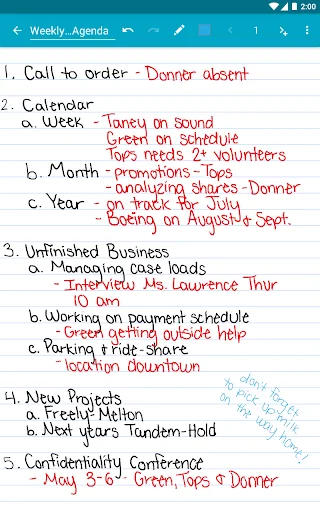 2:00
Weekly...Agenda 1
1. Call to order - Donner absent
2. Calendar
a. Week - Taney on sound
Green on schedule
Tops needs 2+ volunteers
b. Month - promotions - Tops
- analyzing shares - Donner
c. Year - on track for July
- Boeing on August & Sept.
3. Unfinished Business
a. Managing case loads
- Interview Ms. Lawrence Thur
10 am
b. Working on payment schedule
- Green getting outside help
c. Parking & ride-share
- location downtown
don't forget
to pick up milk
on the way home!
4. New Projects
a. Freely - Melton
b. Next years Tandem - Hold
5. Confidentiality Conference
- May 3-6 - Green, Tops & Donner